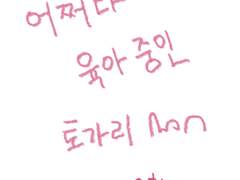 어쩌다
육아 중인
토가리 mon